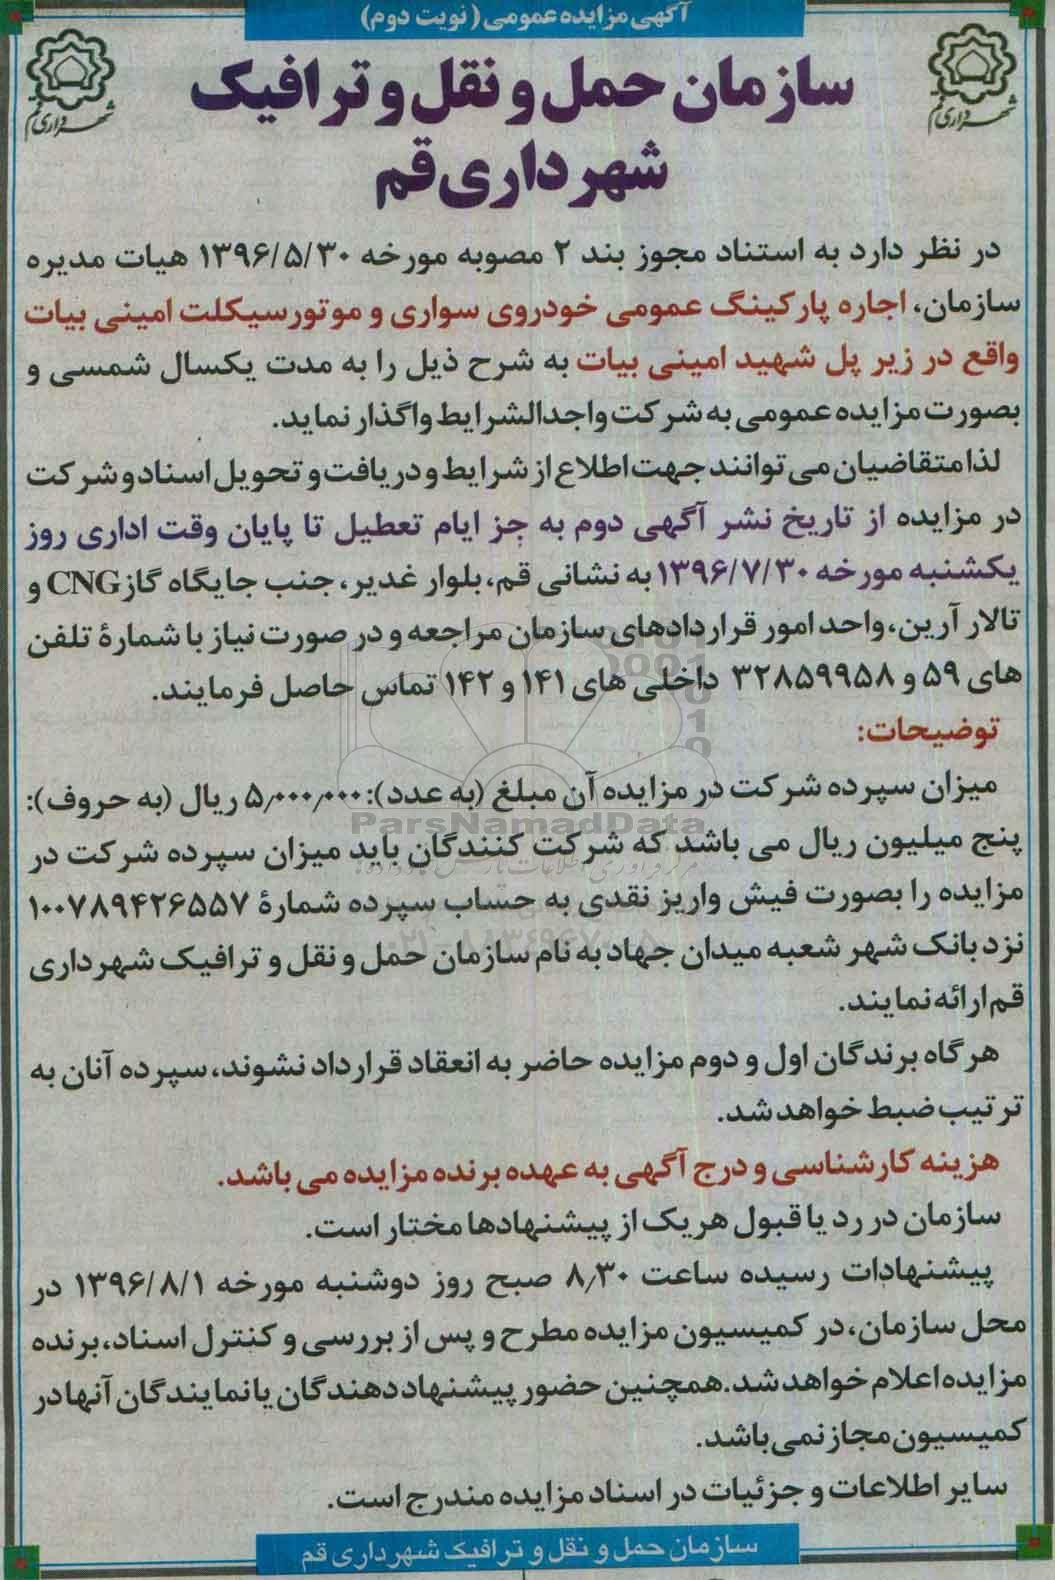 آگهی مزایده عمومی (نوبت دوم)
سازمان حمل و نقل و ترافیک
شهرداری قم
شهرداری قم
شهرداری قم
در نظر دارد به استناد مجوز بند ۲ مصوبه مورخه ۱۳۹۶/۵/۳۰ هیات مدیره
سازمان، اجاره پارکینگ عمومی خودروی سواری و موتورسیکلت امینی بیات
واقع در زیر پل شهید امینی بیات به شرح ذیل را به مدت یکسال شمسی و
بصورت مزایده عمومی به شرکت واجدالشرایط واگذار نماید.
لذا متقاضیان می توانند جهت اطلاع از شرایط و دریافت و تحویل اسناد و شرکت
در مزایده از تاریخ نشر آگهی دوم به جز ایام تعطیل تا پایان وقت اداری روز
یکشنبه مورخه ۱۳۹۶/۷/۳۰ به نشانی قم، بلوار غدیر، جنب جایگاه گاز CNG و
تالار آرین، واحد امور قراردادهای سازمان مراجعه و در صورت نیاز با شمارهٔ تلفن
های ۵۹ و ۳۲۸۵۹۹۵۸ داخلی های ۱۴۱ و ۱۴۲ تماس حاصل فرمایند.
توضیحات:
میزان سپرده شرکت در مزایده آن مبلغ (به عدد): ۵٫۰۰۰٫۰۰۰ ریال (به حروف):
پنج میلیون ریال می باشد که شرکت کنندگان باید میزان سپرده شرکت در
مزایده را بصورت فیش واریز نقدی به حساب سپرده شمارهٔ ۱۰۰۷۸۹۴۲۶۵۵۷
نزد بانک شهر شعبه میدان جهاد به نام سازمان حمل و نقل و ترافیک شهرداری
قم ارائه نمایند.
هرگاه برندگان اول و دوم مزایده حاضر به انعقاد قرارداد نشوند، سپرده آنان به
ترتیب ضبط خواهد شد.
هزینه کارشناسی و درج آگهی به عهده برنده مزایده می باشد.
سازمان در رد یا قبول هریک از پیشنهادها مختار است.
پیشنهادات رسیده ساعت ۸٫۳۰ صبح روز دوشنبه مورخه ۱۳۹۶/۸/۱ در
محل سازمان، در کمیسیون مزایده مطرح و پس از بررسی و کنترل اسناد، برنده
مزایده اعلام خواهد شد. همچنین حضور پیشنهاد دهندگان یا نمایندگان آنها در
کمیسیون مجاز نمی باشد.
سایر اطلاعات و جزئیات در اسناد مزایده مندرج است.
سازمان حمل و نقل و ترافیک شهرداری قم
ParsNamadData